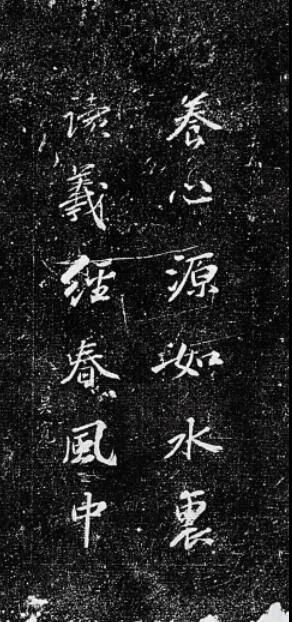 養心源如水裏
讀羲經春風中